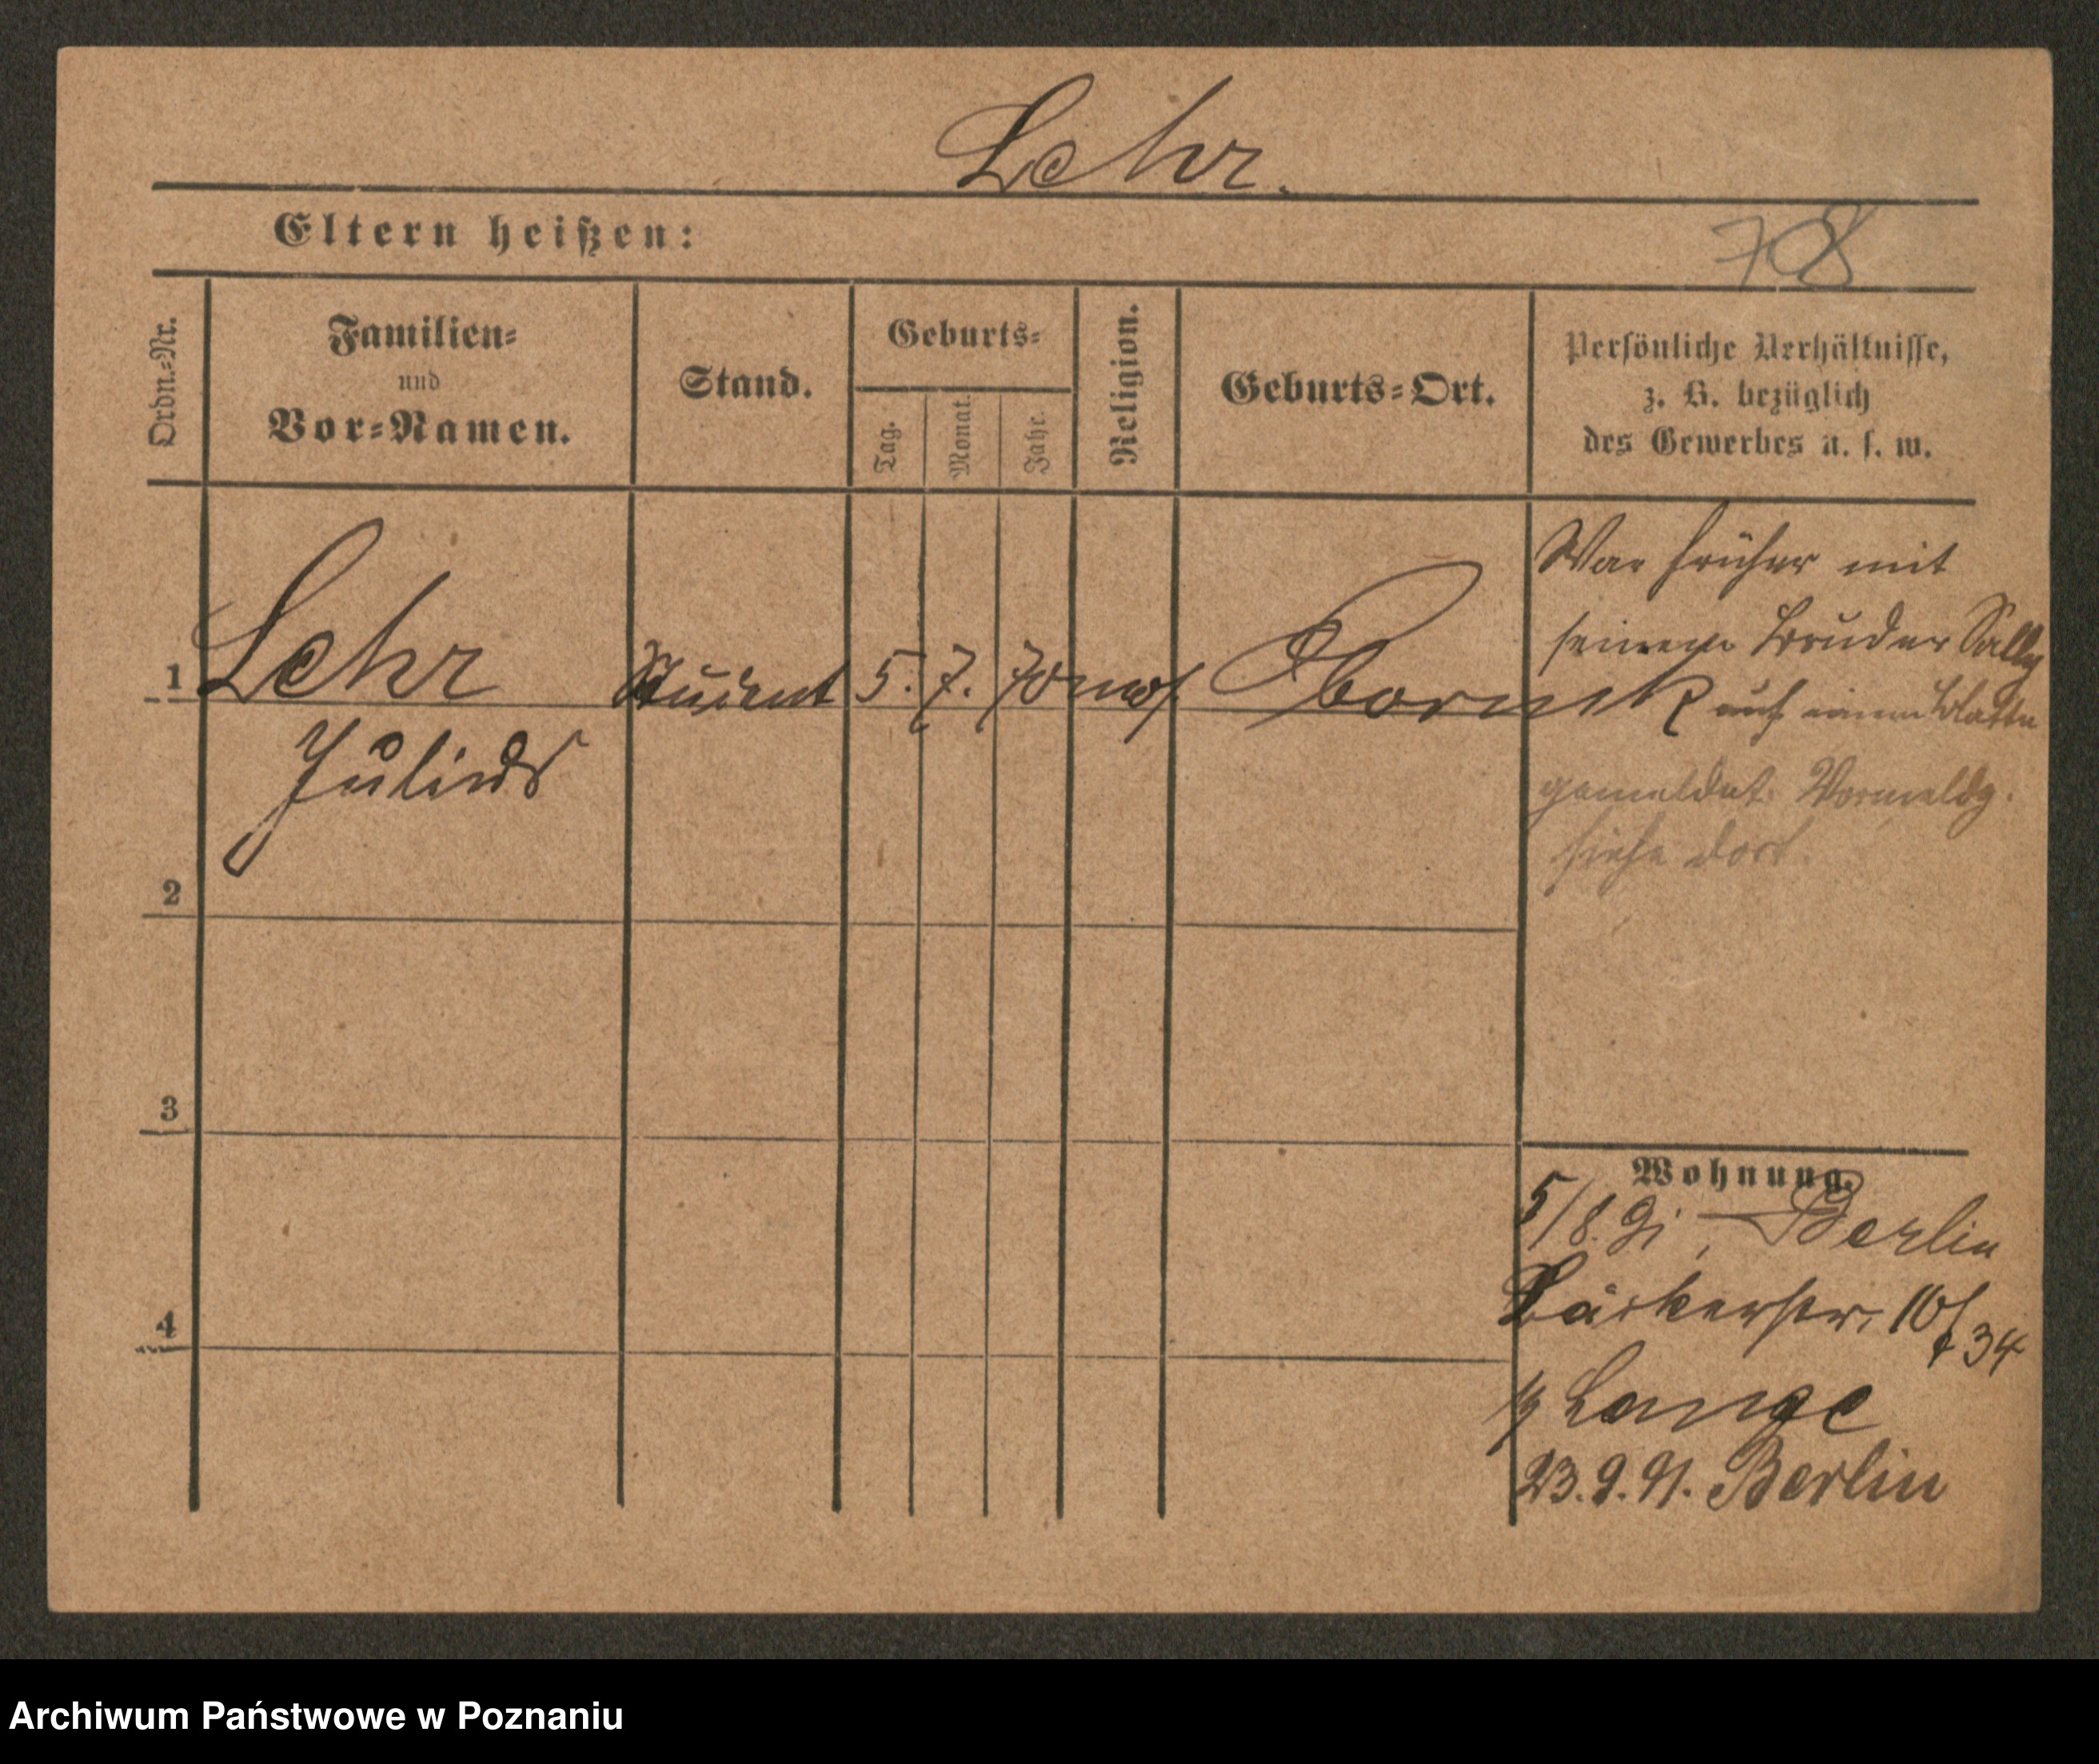 Lehr.
Eltern heißen:
708
Ordn.=Nr.
Familien=
und
Vor=Namen.
Stand.
Geburts=
Tag.
Monat.
Jahr.
Religion.
Geburts=Ort.
Persönliche Verhältnisse,
z. B. bezüglich
des Gewerbes u. s. w.
1
Lehr
Julius
Student
5.
7.
70
mos.
Obornik
War früher mit
seinem Bruder Sally
auf einem Blatte
gemeldet. Vormeldg.
siehe dort.
2
3
4
Wohnung.
5/8. 91, Berlin
str. 10/
34
Lange
23.9.91. Berlin
Archiwum Państwowe w Poznaniu